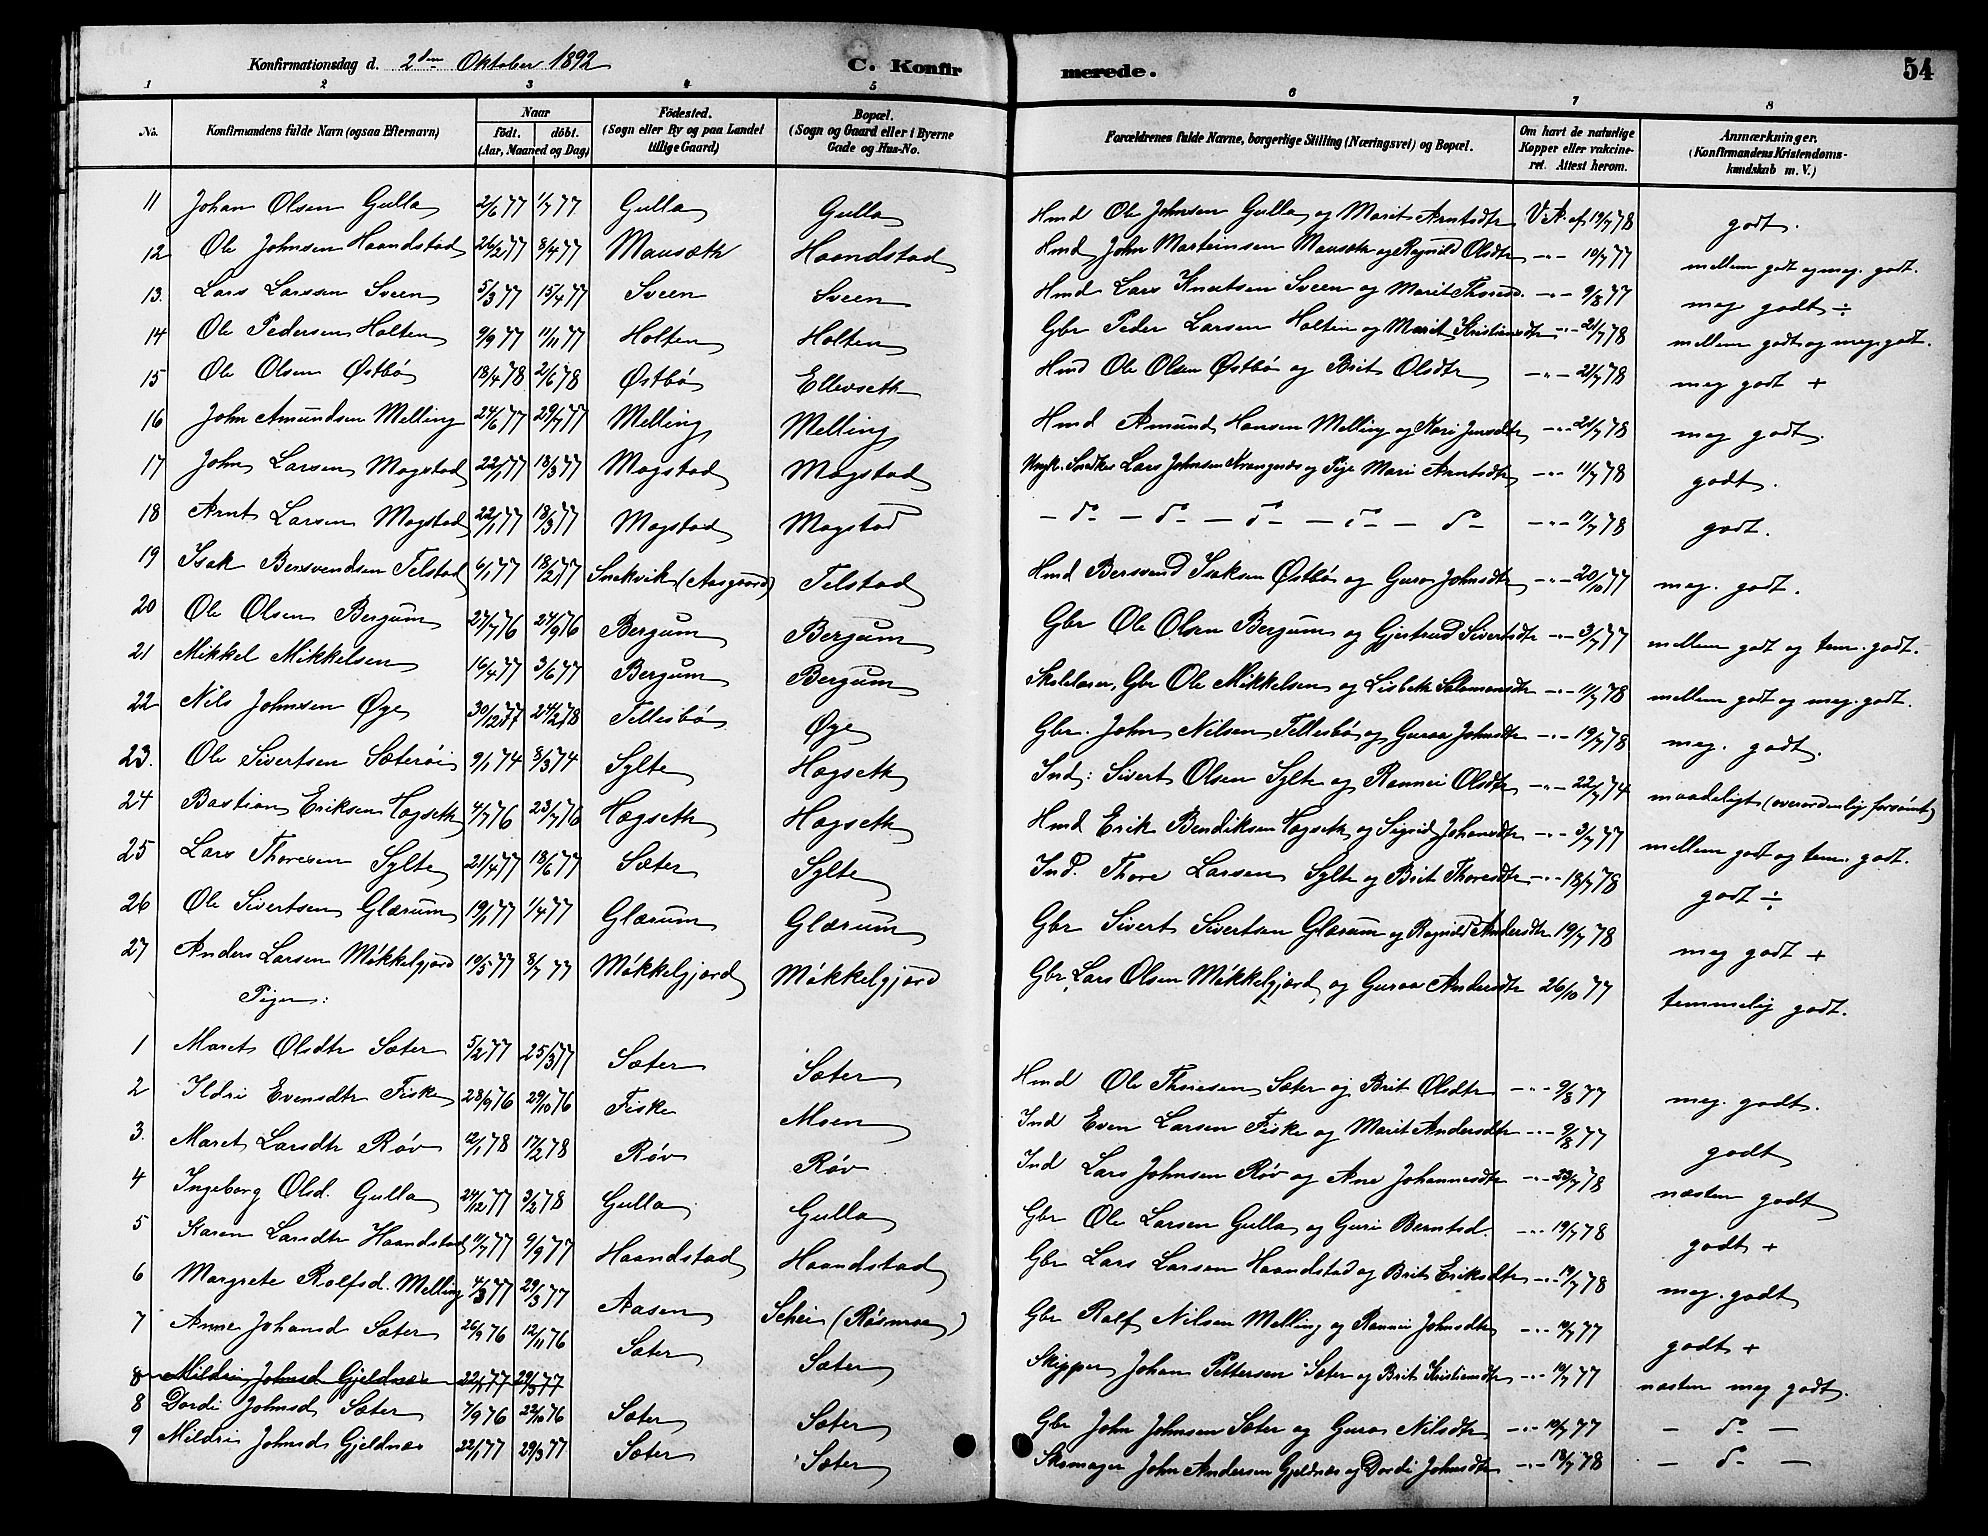 Konfirmationsdag d. 2den Oktober 1892 C. Konfirmerede. 54
1 2 3 4 5 6 7 8
No. Konfirmandens fulde Navn (ogsaa Efternavn) Naar födt. döbt. (Aar, Maaned og Dag) Födested. (Sogn eller By og paa Landet tillige Gaard) Bopæl. (Sogn og Gaard eller i Byerne Gade og Hus-No. Forældrenes fulde Navne, borgerlige Stilling (Næringsvei) og Bopæl. Om havt de naturlige Kopper eller vakcineret. Attest herom. Anmærkninger. (Konfirmandens Kristendomskundskab m. V.)
11 Johan Olsen Gulla 2/6 77 1/7 77 Gulla Gulla Hmd Ole Johnsen Gulla og Marit Arntsdtr V. A. af 19/7 78 godt.
12 Ole Johnsen Haandstad 26/2 77 8/4 77 Mausæth Haandstad Hmd John Marteinsen Mausæth og Ragnild Olsdtr -"- 10/7 77 mellem godt og meg. godt.
13. Lars Larssen Sveen 5/3 77 15/4 77 Sveen Sveen Hmd Lars Knutsen Sveen og Marit Thoresd. -"- 9/8 77 meg godt ÷
14 Ole Pedersen Holten 9/9 77 11/11 77 Holten Holten Gbr Peder Larsen Holten og Marit Kristiansdtr -"- 21/7 78 mellem godt og meg. godt.
15 Ole Olsen Østbø 13/4 78 2/6 78 Østbø Ellevseth Hmd Ole Olsen Østbø og Brit Olsdtr -"- 21/7 78 meg godt +
16 John Amundsen Melling 24/6 77 29/7 77 Melling Melling Hmd Amund Hansen Melling og Kari Jensdtr -"- 21/7 78 meg godt.
17 John Larsen Mogstad 22/1 77 18/3 77 Mogstad Mogstad Ungk. Snedker Lars Johnsen Krangnæs og Pige Mari Arntsdtr -"- 11/7 78 godt.
18 Arnt Larsen Mogstad 22/1 77 18/3 77 Mogstad Mogstad – do – do – do – do – do – -"- 11/7 78 godt.
19 Isak Bersvendsen Telstad 6/1 77 18/2 77 Snekvik (Aasgaard) Telstad Hmd Bersvend Isaksen Østbø og Guroe Johnsdtr -"- 20/10 77 meg. godt.
20 Ole Olsen Bergum 27/7 76 24/9 76 Bergum Bergum Gbr Ole Olsen Bergum og Gjertrud Sivertsdtr -"- 3/7 77 mellem godt og tem. godt.
21 Mikkel Mikkelsen 16/4 77 3/6 77 Bergum Bergum Skolelærer, Gbr Ole Mikkelsen og Lisbeth Salamonsdtr -"- 11/7 78 mellem godt og meg. godt.
22 Nils Johnsen Øye 30/12 77 24/2 78 Tellesbø Øye Gbr. John Nilsen Tellesbø og Guroe Johnsdtr -"- 19/7 78 meg. godt.
23. Ole Sivertsen Sæterøi 9/1 74 8/3 74 Sylte Hogseth Ind: Sivert Olsen Sylte og Rannei Olsdtr -"- 22/7 74 maadeligt (overordenlig forsömt)
24 Bastian Eriksen Hogseth 4/7 76 23/7 76 Hægseth Hogseth Hmd Erik Bendiksen Hogseth og Sigrid Johansdtr -"- 3/7 77 mellem godt og tem. godt.
25 Lars Thoresen Sylte 21/4 77 18/6 77 Sæter Sylte Ind. Thore Larsen Sylte og Brit Thoresdtr -"- 18/7 78 godt ÷
26 Ole Sivertsen Glærum 19/1 77 1/4 77 Glærum Glærum Gbr Sivert Sivertsen Glærum og Ragnild Andersdtr 19/7 78 meg godt +
27 Anders Larsen Mökkelgjord 19/5 77 8/7 77 Mökkelgjord Mökkelgjord Gbr. Lars Olsen Mökkelgjord og Guroe Andersdtr 26/10 77 temmelig godt.
Piger:
1 Maret Olsdtr Sæter 5/2 77 25/3 77 Sæter Sæter Hmd Ole Thoresen Sæter og Brit Olsdtr -"- 9/8 77 meg. godt.
2 Ildri Evensdtr Fiske 28/9 76 29/10 76 Fiske Moen Ind Even Larsen Fiske og Marit Andersdtr -"- 9/8 77 godt
3. Maret Larsdtr Røv 12/1 78 17/2 78 Røv Røv Ind Lars Johnsen Røv og Ane Johannesdtr -"- 23/7 78 næsten godt
4 Ingeborg Olsd. Gulla 24/12 77 3/2 78 Gulla Gulla Gbr Ole Larsen Gulla og Guri Berntsd. -"- 19/7 78 godt +
5 Karen Larsdtr Haandstad 11/7 77 9/9 77 Haandstad Haandstad Gbr Lars Larsen Haandstad og Brit Eriksdtr -"- 19/7 78 meg. godt
6 Margrete Rolfsd. Melling 4/3 77 29/3 77 Aasen Schei (Røsmoe) Gbr Rolf Nilsen Melling og Rannei Johnsdtr -"- 10/7 77 godt +
7 Anne Johansd Sæter 26/9 76 12/11 76 Sæter Sæter Skipper Johan Pettersen Sæter og Brit Kristiansdtr -"- 10/7 77 næsten meg godt.
8 Mildri Johnsd Gjeldnæs 22/1 77 29/3 77
8 Dordi Johnsd Sæter 7/9 76 22/10 76 Sæter Sæter Gbr John Johnsen Sæter og Guroe Nilsdtr -"- 10/7 77 – do –
9 Mildri Johnsd Gjeldnæs 22/1 77 29/3 77 Sæter Sæter Skomager John Andersen Gjeldnæs og Dordi Johnsdtr -"- 18/7 78 – do –